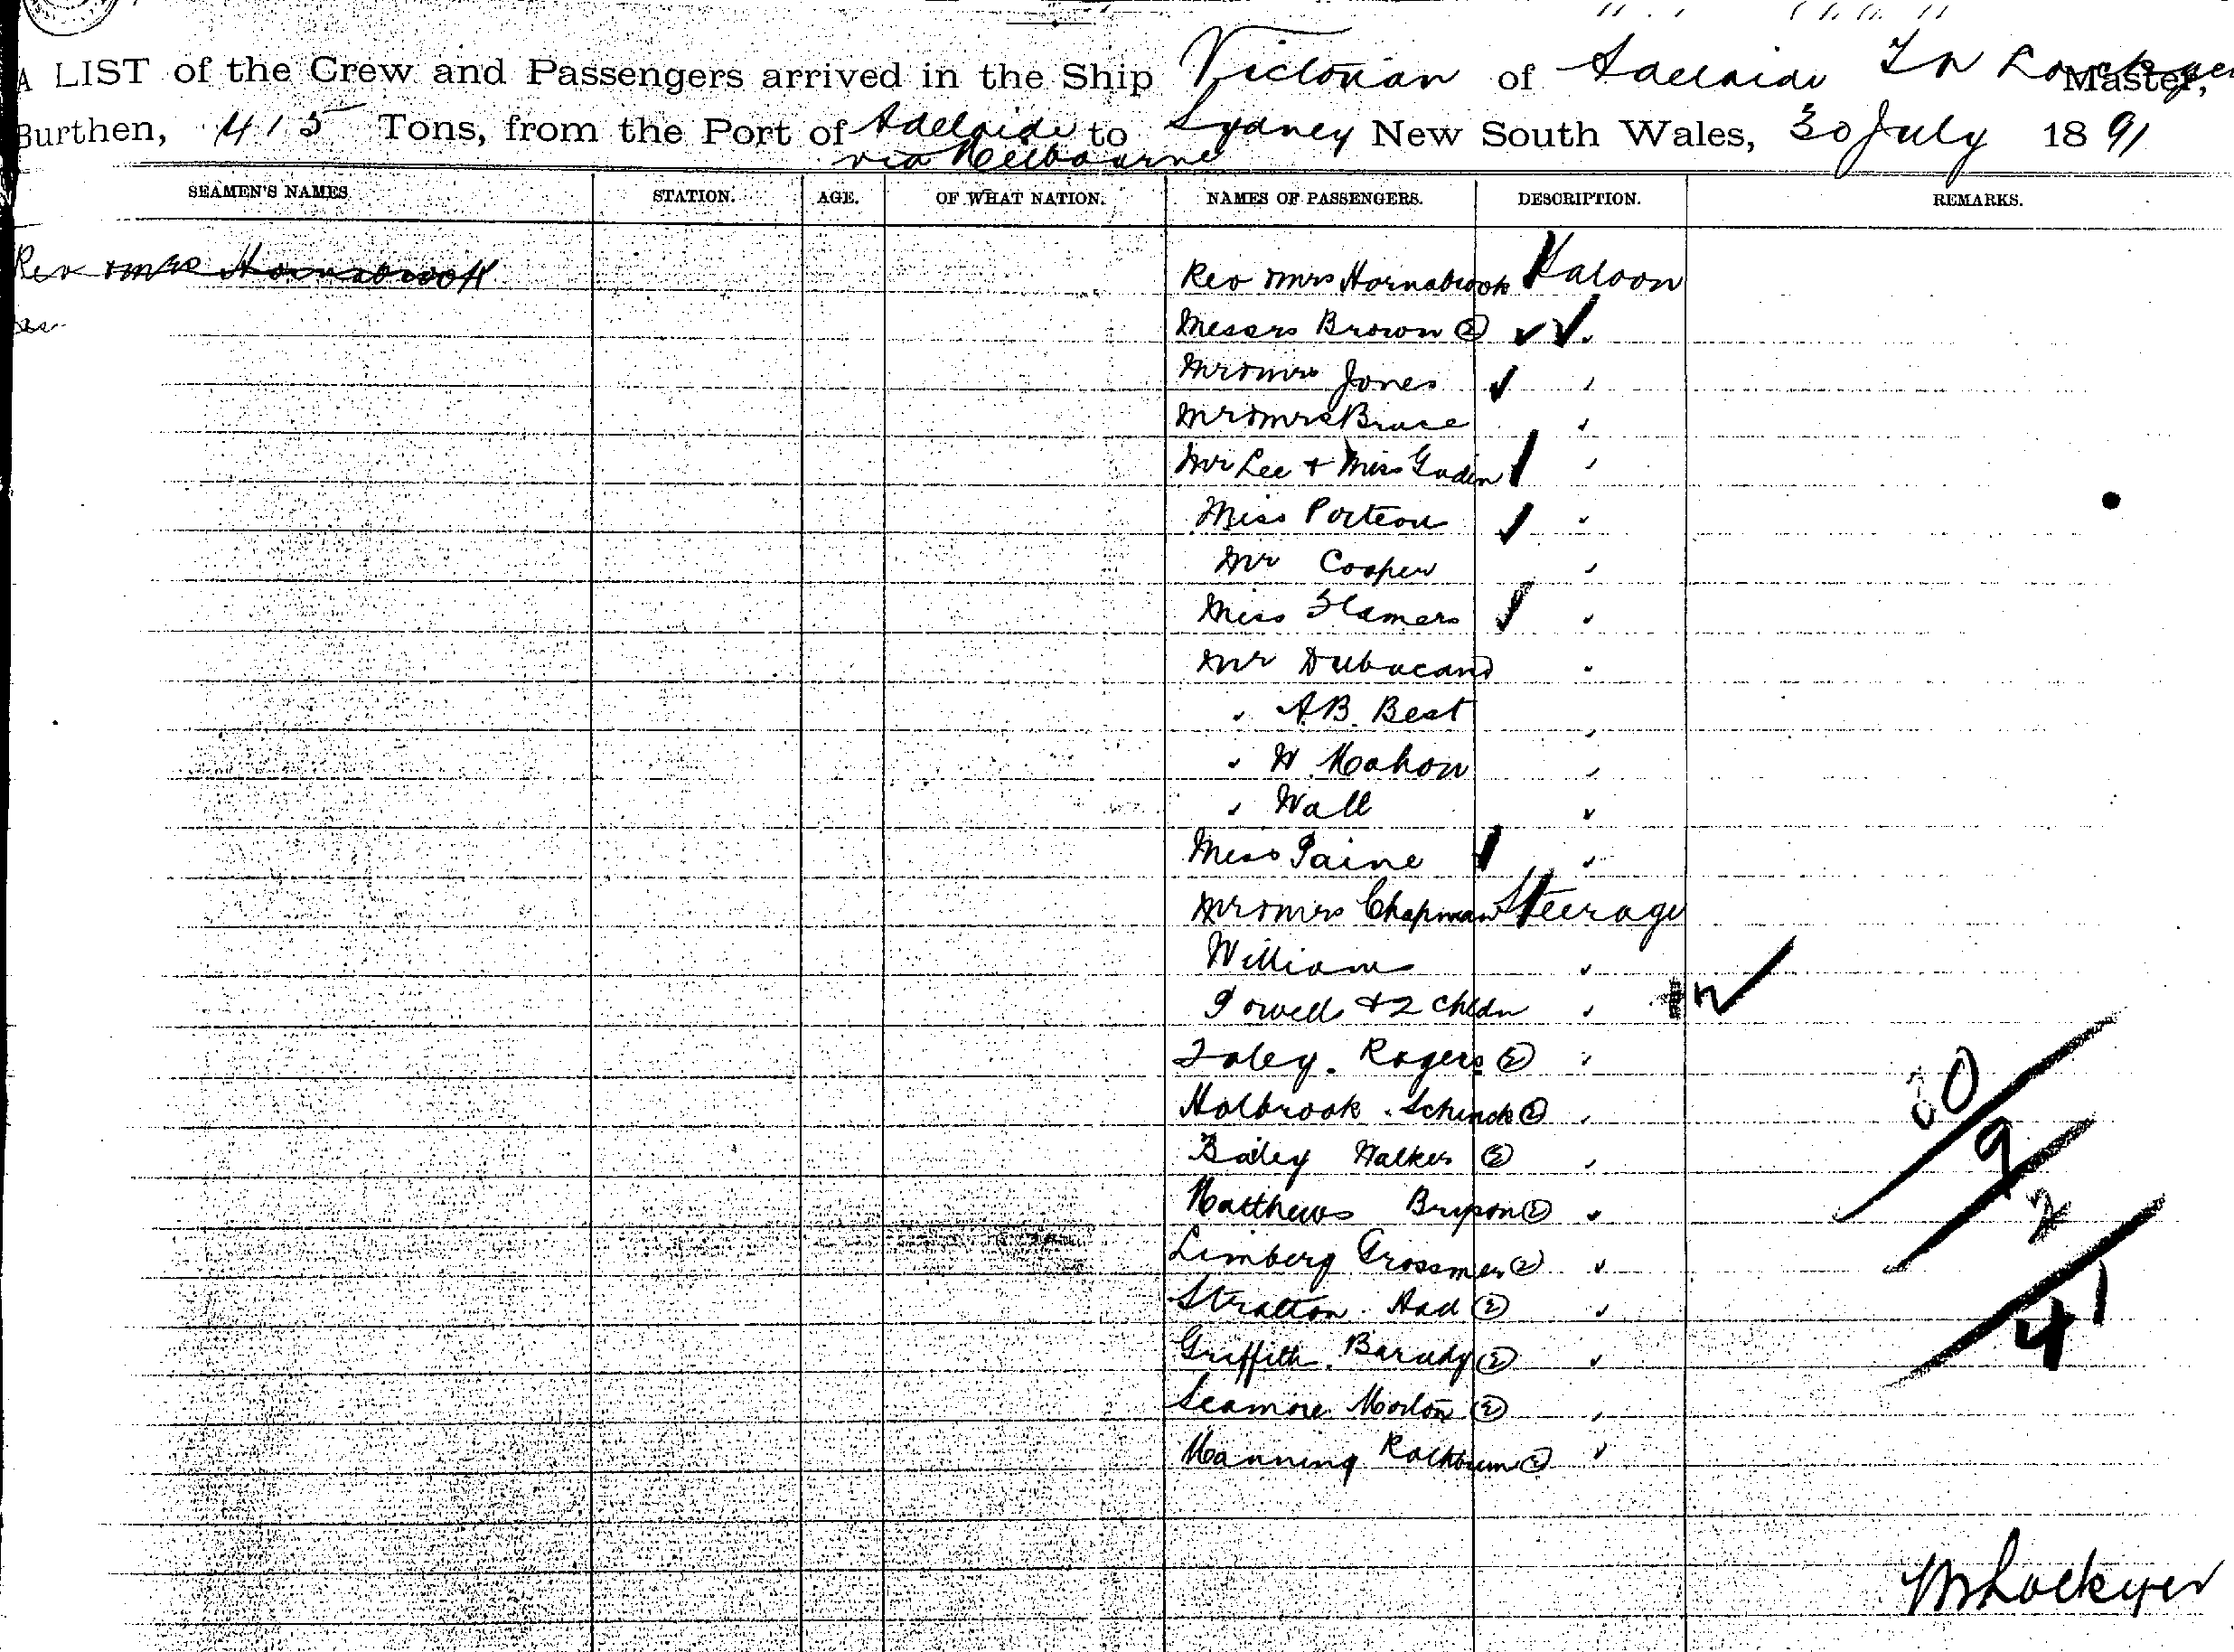 A LIST of the Crew and Passengers arrived in the Ship Victorian of Adelaide Lockyer Master,
Burthen, 415 Tons, from the Port of Adelaide to Sydney New South Wales, 30 July 1891
via Melbourne
SEAMEN'S NAMES STATION. AGE. OF WHAT NATION. NAMES OF PASSENGERS. DESCRIPTION. REMARKS.
Rev & Mrs Hornabrook Rev & Mrs Hornabrook Saloon
Messrs Brown (2)
Mr & Mrs Jones
Mr & Mrs Bruce
Mr Lee + Miss
Miss Porteou
Mr Cooper
Miss
Mr
A.B. Best
W. Mahon
Wall
Miss Paine
Mr & Mrs Chapman Steerage
Williams
Powell & 2 Chldn
Foley. Rogers (2)
Holbrook. Schinck (2)
Bailey Walker (2)
Matthews (2)
Limberg Grossmen (2)
Stratton. Had (2)
Griffith. (2)
Seamore Morton (2)
Manning (2)
30
9
2
41
Lockyer